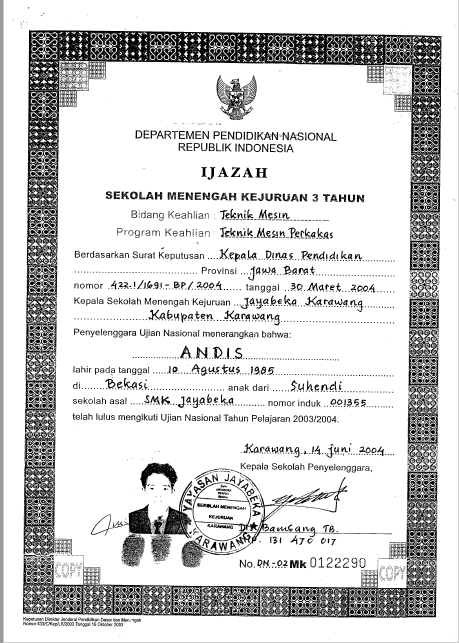 DEPARTEMEN PENDIDIKAN NASIONAL
REPUBLIK INDONESIA
IJAZAH
SEKOLAH MENENGAH KEJURUAN 3 TAHUN
Bidang Keahlian : Teknik Mesin
Program Keahlian : Teknik Mesin Perkakas
Berdasarkan Surat Keputusan Kepala Dinas Pendidikan
Provinsi Jawa Barat
nomor 422.1/1691-BP/2004 tanggal 30 Maret 2004
Kepala Sekolah Menengah Kejuruan Jayabeka Karawang
Kabupaten Karawang
Penyelenggara Ujian Nasional menerangkan bahwa:
ANDIS
lahir pada tanggal 10 Agustus 1985
di Bekasi anak dari Suhendi
sekolah asal SMK Jayabeka nomor induk 001355
telah lulus mengikuti Ujian Nasional Tahun Pelajaran 2003/2004.
Karawang, 14 Juni 2004
Kepala Sekolah Penyelenggara,
YAYASAN JAYABEKA
SEKOLAH MENENGAH
KEJURUAN
KARAWANG
KARAWANG
Bambang TB.
131 470 017
No. DN-02 Mk 0122290
COPY
COPY
Keputusan Direktur Jenderal Pendidikan Dasar dan Menengah
Tanggal 16 Oktober 2003